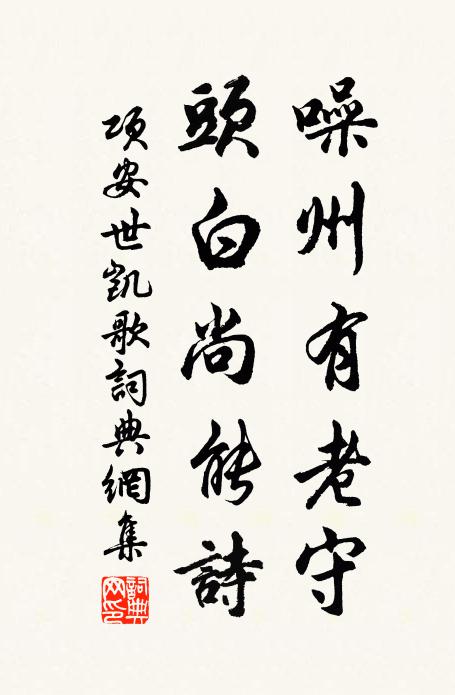 噪州有老守
頭白尚能詩
項安世凱歌詞典網集
詞典网印